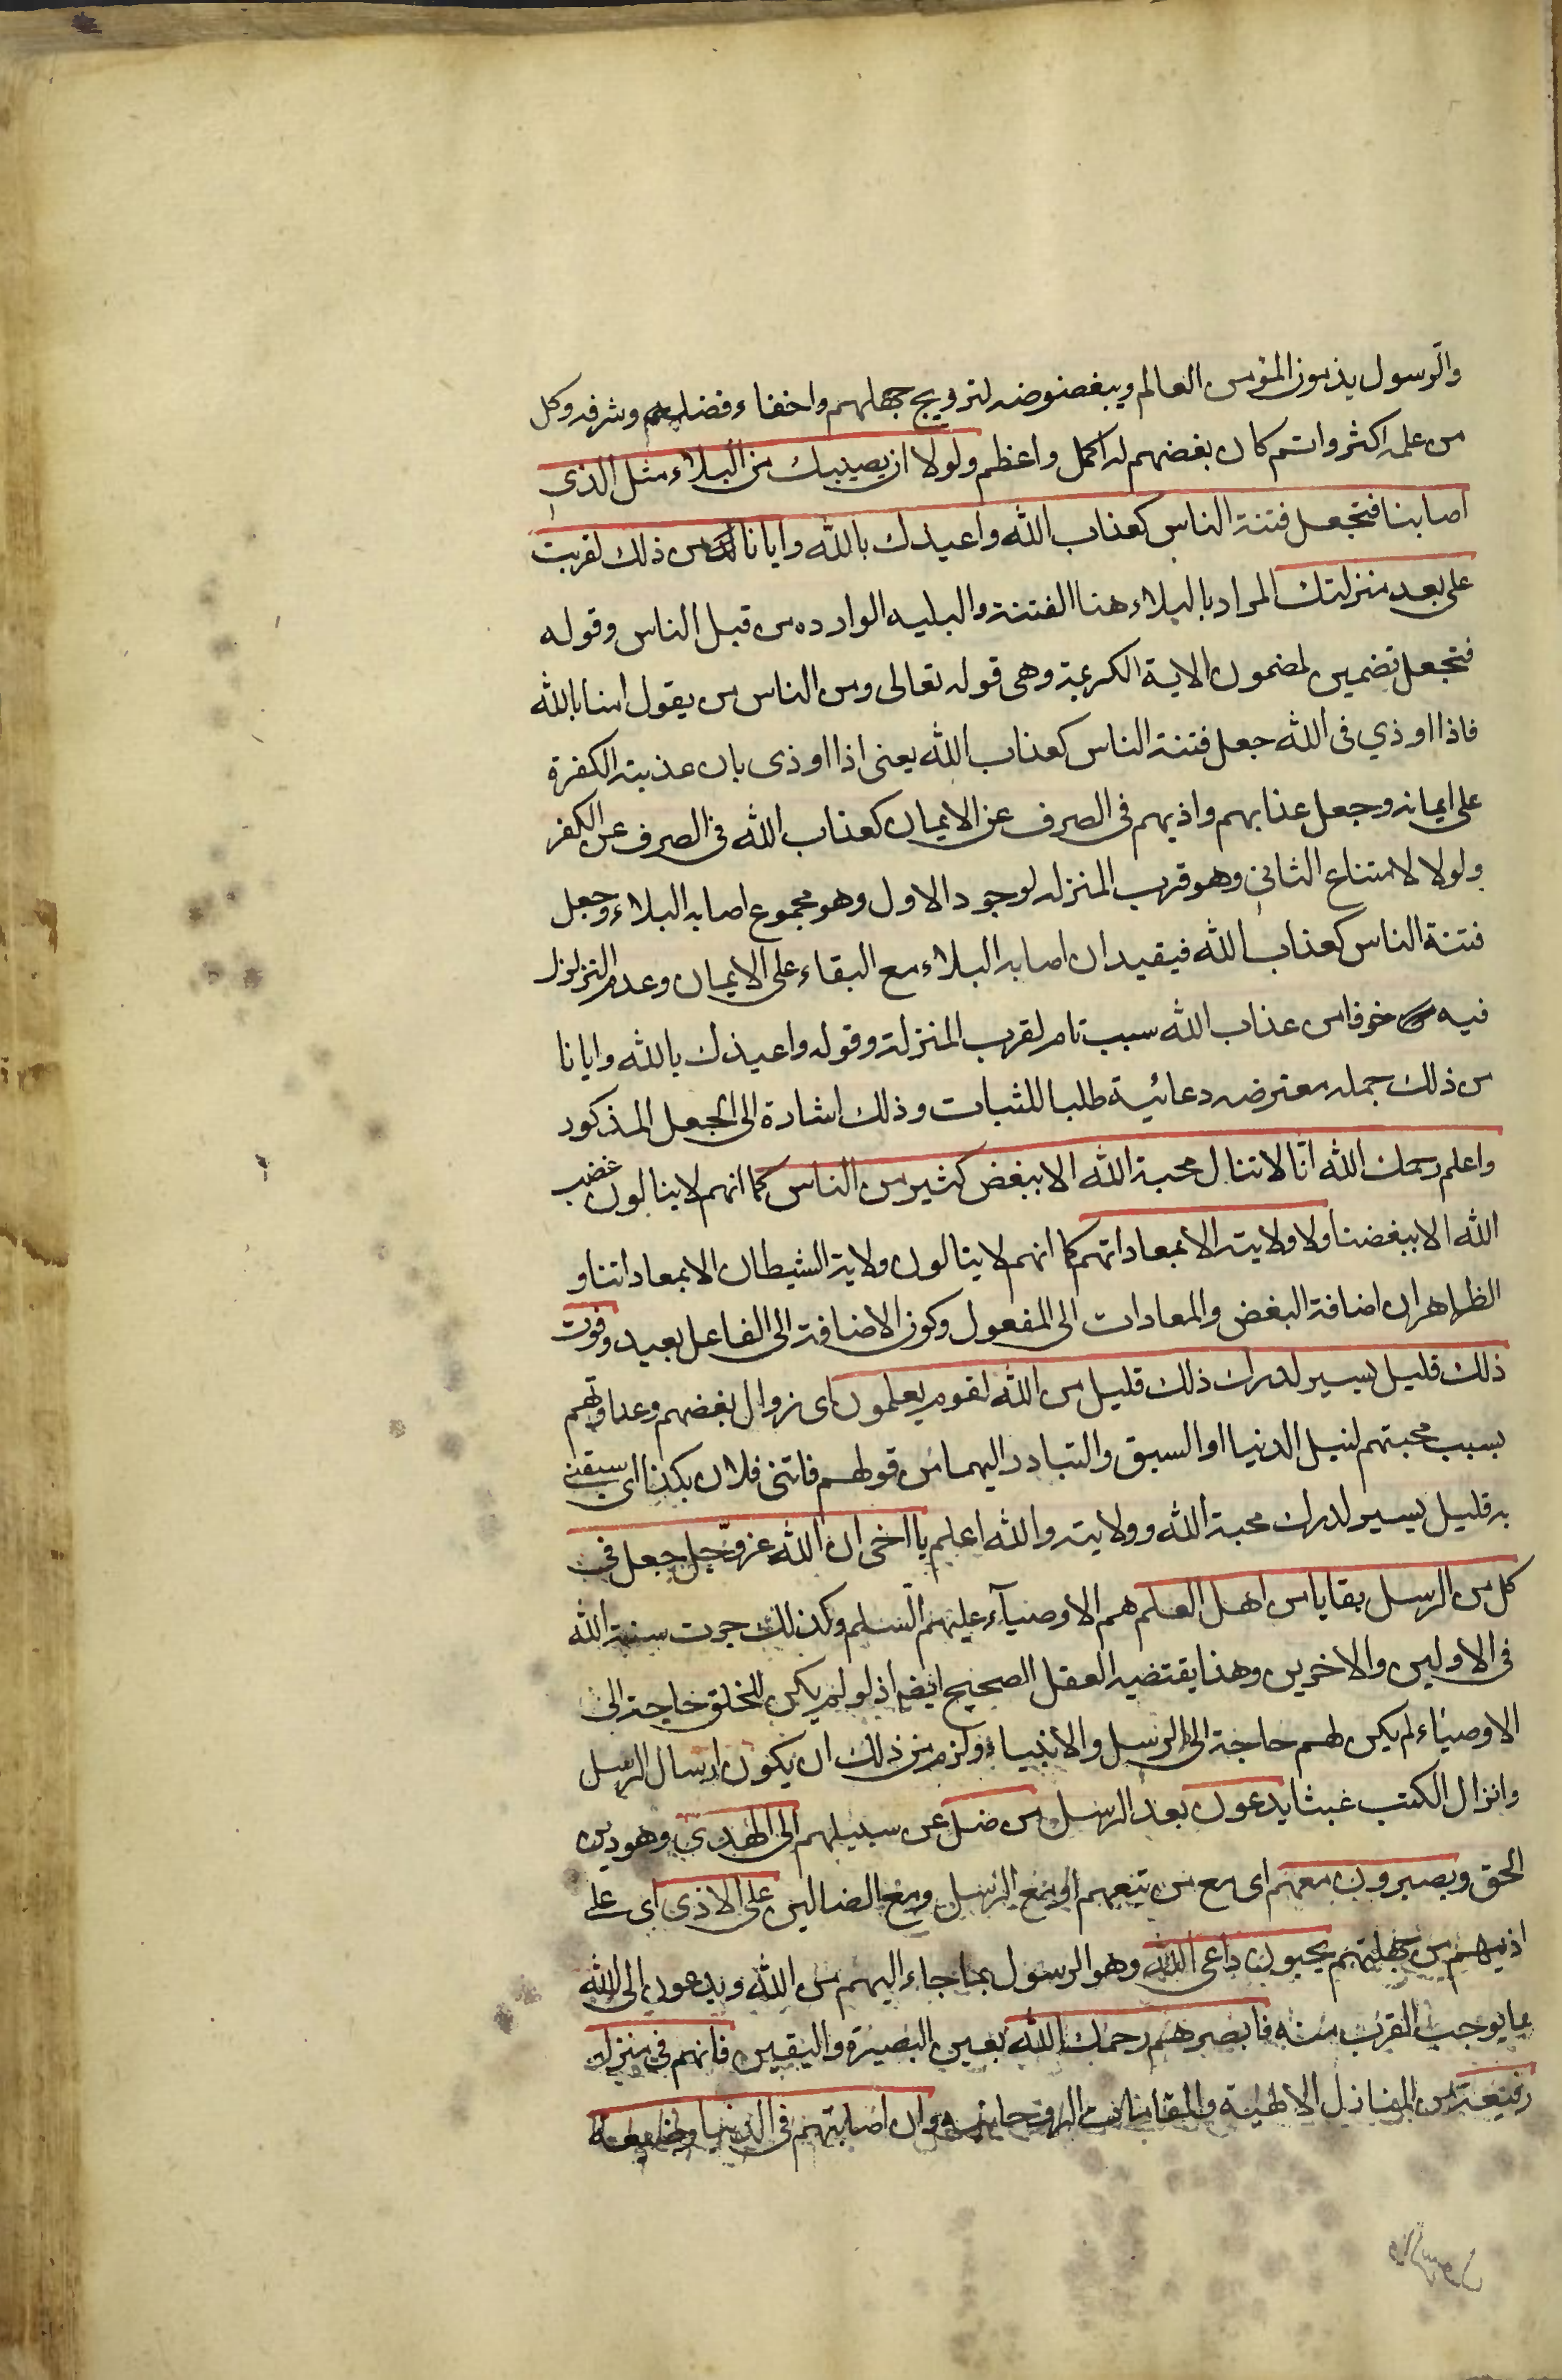 والرسول يذمون المؤمن العالم ويبغضونه لترويج جهلهم واخفاء فضلهم وشرفه وكل
من علمه اكثر واتم كان بغضهم له اكمل واعظم ولولا ان يصيبك من البلاء مثل الذي
اصابنا فتجعل فتنة الناس كعذاب الله واعيذك بالله وايانا من ذلك لقربت
على بعد منزلتك المراد بالبلاء هنا الفتنة والبليه الوارده من قبل الناس وقوله
فتجعل تضمين لمضمون الاية الكريمة وهى قوله تعالى ومن الناس من يقول امنا بالله
فاذا اوذي فى الله جعل فتنة الناس كعذاب الله يعنى اذا اوذى بان عذبته الكفرة
على ايمانه وجعل عذابهم واذيهم فى الصرف عن الايمان كعذاب الله فى الصرف عن الكفر
ولولا لامتناع الثانى وهو قرب المنزله لوجود الاول وهو مجموع اصابه البلاء وجعل
فتنة الناس كعذاب الله فيفيد ان اصابه البلاء مع البقاء على الايمان وعدم التزلزل
فيه خوفا من عذاب الله سبب تام لقرب المنزلة وقوله واعيذك بالله وايانا
من ذلك جمله معترضه دعائية طلبا للثبات وذلك اشارة الى الجعل المذكور
واعلم رحمك الله انا لا تنال محبة الله الا ببغض كثير من الناس كما انهم لا ينالون غضب
الله الا ببغضنا ولا ولايته الا بمعاداتهم كما انهم لا ينالون ولاية الشيطان الا بمعاداتنا و
الظاهر ان اضافة البغض والمعادات الى المفعول وكون الاضافة الى الفاعل بعيد وفوت
ذلك قليل يسير لدرك ذلك قليل من الله لقوم يعلمون اى زوال بغضهم وعداوتهم
بسبب محبتهم لنيل الدنيا او السبق والتبادر اليهما من قولهم فاتنى فلان بكذا اى سبقنى
به قليل يسير لدرك محبة الله وولايته والله اعلم يا اخى ان الله عز وجل جعل فى
كل من الرسل بقايا من اهل العلم هم الاوصيآء عليهم السلم وكذلك جرت سنة الله
فى الاولين والاخرين وهذا يقتضيه العقل الصحيح ايضا اذ لو لم يكن للخلق حاجة الى
الاوصياء لم يكن لهم حاجة الى الرسل والانبياء ولزم من ذلك ان يكون ارسال الرسل
وانزال الكتب عبثا يدعون بعد الرسل من ضل عن سبيلهم الى الهدى وهو دين
الحق ويصبرون معهم اى مع من يتبعهم او مع الرسل ومع الضالين على الاذى اى على
اذيهم من جهلتهم يجيبون داعى الله وهو الرسول بما جاء اليهم من الله ويدعون الى الله
بما يوجب القرب منه فابصرهم رحمك الله بعين البصيرة واليقين فانهم فى منزله
رفيعة من المنازل الالهية والمقامات الروحانيه وان اصابتهم فى الدنيا وضيعة